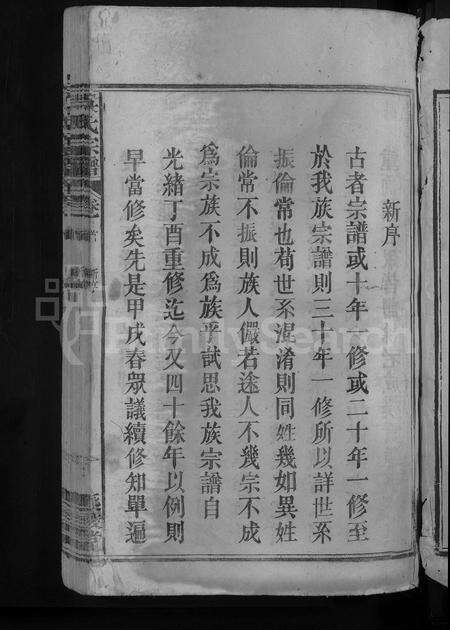 新序
古者宗譜或十年一修或二十年一修至
於我族宗譜則三十年一修所以詳世系
振倫常也茍世系混淆則同姓幾如異姓
倫常不振則族人儼若途人不幾宗不成
為宗族不成為族乎試思我族宗譜自
光緒丁酉重修迄今又四十餘年以例則
早當修矣先是甲戌春眾議續修知單遍
氏宗譜
卷
首
新序
FamilySearch